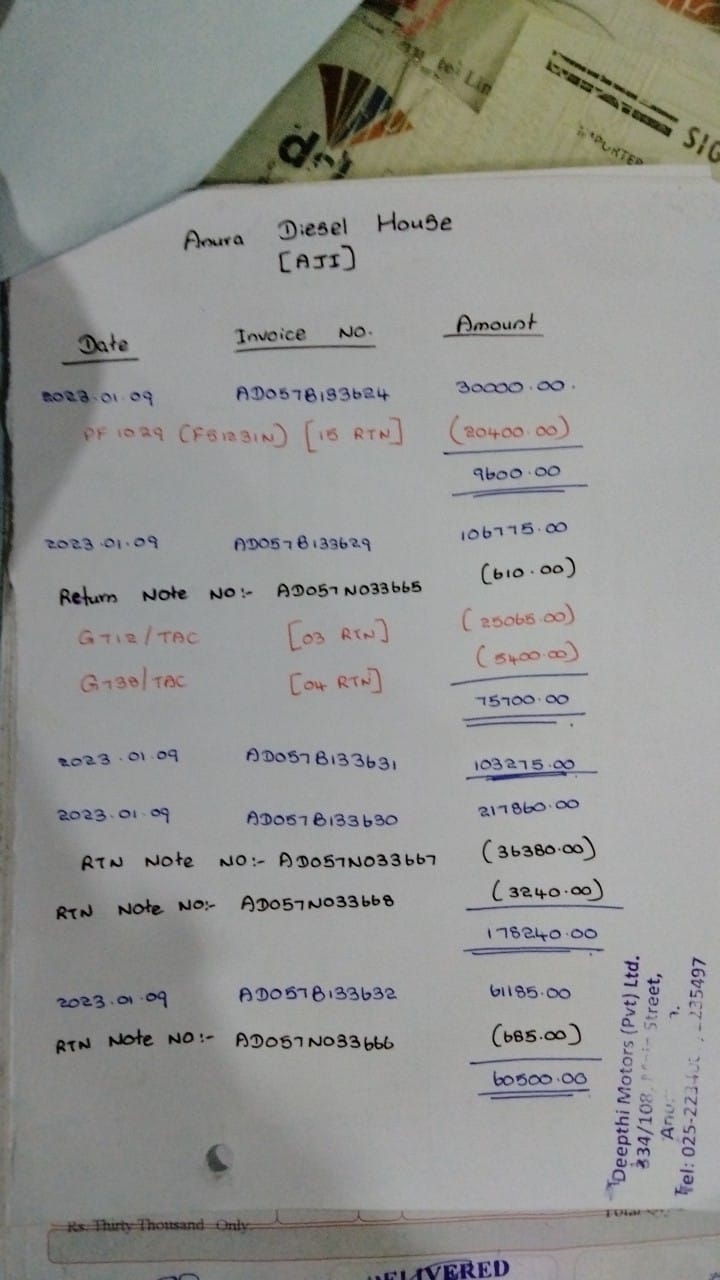 SIG
IMPORTER
Anura Diesel House
[AJI]
Date Invoice No. Amount
2023.01.09 AD057B133624 30000.00
PF 1029 (FS1231N) [15 RTN] (20400.00)
9600.00
2023.01.09 AD057B133629 106775.00
Return Note No:- AD057N033665 (610.00)
G712/TAC [03 RTN] (25065.00)
G738/TAC [04 RTN] (5400.00)
75700.00
2023.01.09 AD057B133631 103275.00
2023.01.09 AD057B133630 217860.00
RTN Note No:- AD057N033667 (36380.00)
RTN Note No:- AD057N033668 (3240.00)
178240.00
2023.01.09 AD057B133632 61185.00
RTN Note No:- AD057N033666 (685.00)
60500.00
Deepthi Motors (Pvt) Ltd.
334/108, Street,
Tel: 025-223 -235497
Rs. Thirty Thousand Only
DELIVERED